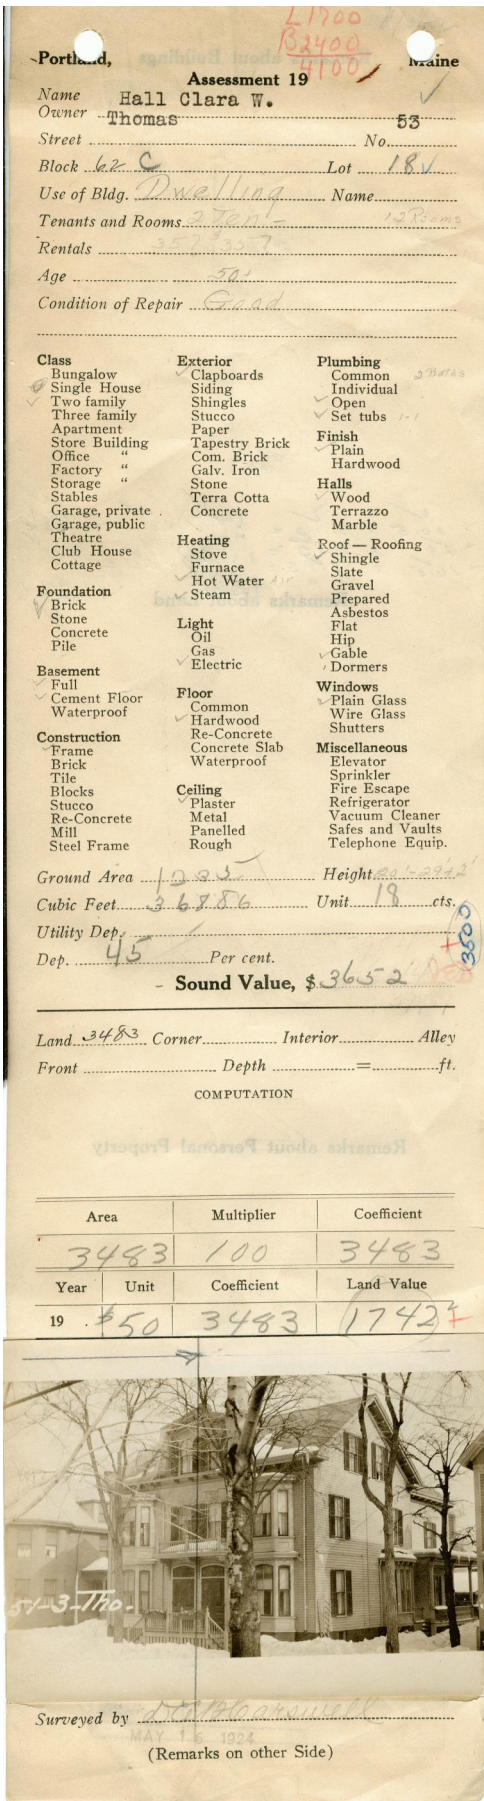 L1700
B2400
4100
Portland, Maine
Assessment 19
Name Hall Clara W.
Owner
Thomas 53
Street No.
Block 62 C Lot 18
Use of Bldg. Dwelling Name
Tenants and Rooms 2 Ten- 12 Rooms
Rentals 35 35
Age 50
Condition of Repair Good
Class
Bungalow
Single House
Two family
Three family
Apartment
Store Building
Office "
Factory "
Storage "
Stables
Garage, private
Garage, public
Theatre
Club House
Cottage
Foundation
Brick
Stone
Concrete
Pile
Basement
Full
Cement Floor
Waterproof
Construction
Frame
Brick
Tile
Blocks
Stucco
Re-Concrete
Mill
Steel Frame
Exterior
Clapboards
Siding
Shingles
Stucco
Paper
Tapestry Brick
Com. Brick
Galv. Iron
Stone
Terra Cotta
Concrete
Heating
Stove
Furnace
Hot Water
Steam
Light
Oil
Gas
Electric
Floor
Common
Hardwood
Re-Concrete
Concrete Slab
Waterproof
Ceiling
Plaster
Metal
Panelled
Rough
Plumbing
Common 2 Baths
Individual
Open
Set tubs 1-1
Finish
Plain
Hardwood
Halls
Wood
Terrazzo
Marble
Roof — Roofing
Shingle
Slate
Gravel
Prepared
Asbestos
Flat
Hip
Gable
Dormers
Windows
Plain Glass
Wire Glass
Shutters
Miscellaneous
Elevator
Sprinkler
Fire Escape
Refrigerator
Vacuum Cleaner
Safes and Vaults
Telephone Equip.
Ground Area 1235 Height
Cubic Feet 36886 Unit 18 cts.
Utility Dep.
3500
Dep. 45 Per cent.
Sound Value, $ 3652
Land 3483 Corner Interior Alley
Front Depth = ft.
COMPUTATION
Area Multiplier Coefficient
3483 100 3483
Year Unit Coefficient Land Value
19 $50 3483 1742
51-3-Tho.
Surveyed by
MAY 16 1924
(Remarks on other Side)